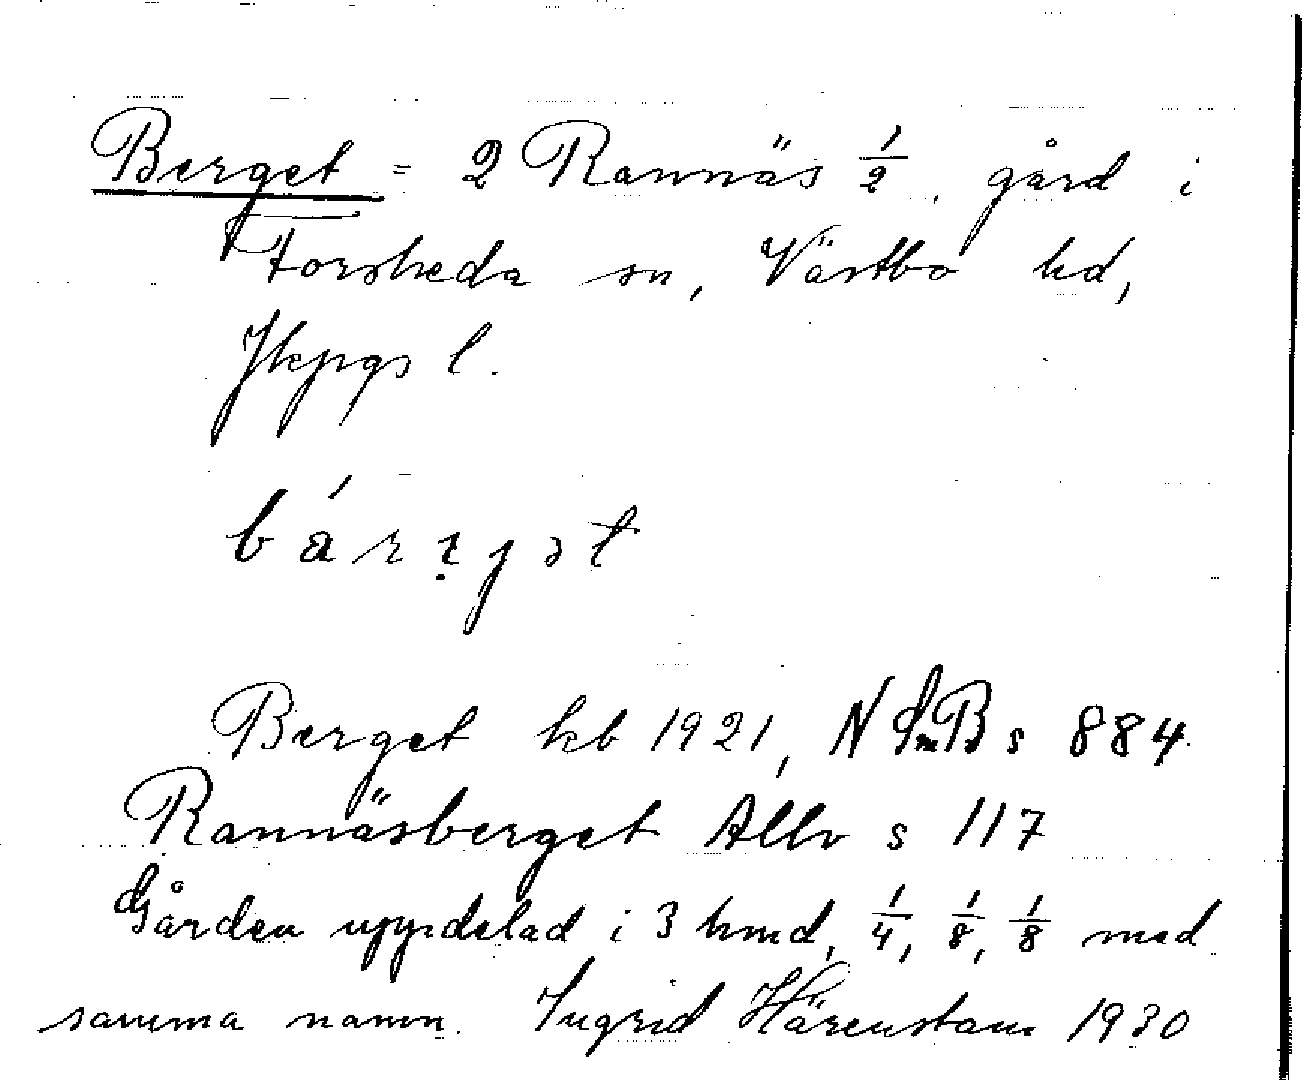 Berget = 2 Rannäs 1/2, gård i
Forsheda sn, Västbo hd,
Jkpgs l.
bárɪ̣jət
Berget kb 1921, NSmB s 884.
Rannäsberget Allv s 117
Gården uppdelad i 3 hmd, 1/4, 1/8, 1/8 med
samma namn. Ingrid Härenstam 1930